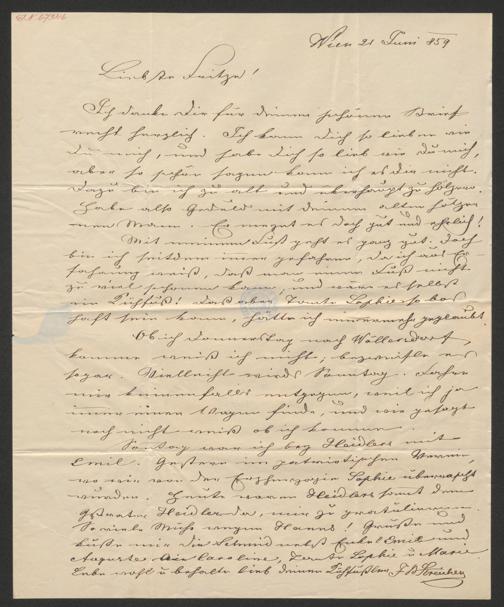 Wien 21 Juni 859
Liebste Fritze!
Ich danke Dir für deinen schönen Brief
recht herzlich. Ich kann Dich so lieben wie
Du mich, und habe Dich so lieb wie Du mich,
aber so schön sagen kann ich es dir nicht.
Dazu bin ich zu alt und überhaupt zu hölzern.
Habe also Geduld mit deinem alten hölzer
nen Mann. Er meynt es doch gut und ehrlich!
Mit meinem Fuß geht es ganz gut. Doch
bin ich seitdem immer gefahren, da ich aus Er-
fahrung weiß, daß man einen Fuß nicht
zu viel schonen kann, und wäre es selbst
ein Kuhfuß! Daß aber Tante Sophie so bos
haft sein kann, hätte ich nimmermehr geglaubt.
Ob ich Donnerstag nach Wöllersdorf
komme weiß ich nicht; bezweifle es
sogar. Vielleicht wirds Sonntag.
mir keinenfalls entgegen, weil ich ja
immer einen Wagen finde, und wie gesagt
noch nicht weiß ob ich komme.
Sonntag war ich bey Haidlers mit
Emil. Gestern im patriotischen Verein,
wo wir von der Erzherzogin Sophie überrascht
wurden. Heute waren Haidlers samt dem
Haidler da, mir zu gratuliren.
So viele Mühe wegen Grüße und
küße mir die Schmid nebst Emil und
Auguste, Caroline, Tante Sophie u Marie
Lebe wohl u behalte lieb deinen